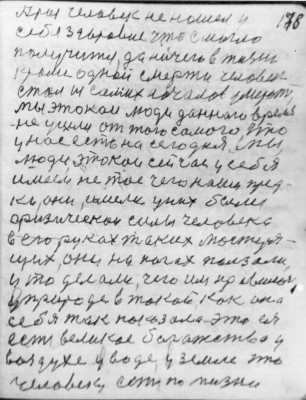 При человек не нашел у 176
себя здоровие что смогло
получится да ничего в жизни
кроме одной смерти человек
стал и самих началов умерт
мы это кои люди данного время
не ушли от того самого что
у нас есть на сегодня. мы
люди это кои сейчас у себя
имеем не тое чего наши пред
ки, они имели у них были
физической силы человека
в его руках таких мостуря
щих, они на ногах ползали
и то делали, чего им
у природе в такой как она
себя так показала это ея
есть великое богатство у
воздухе у воде, у земле это
человеку есть по жизни